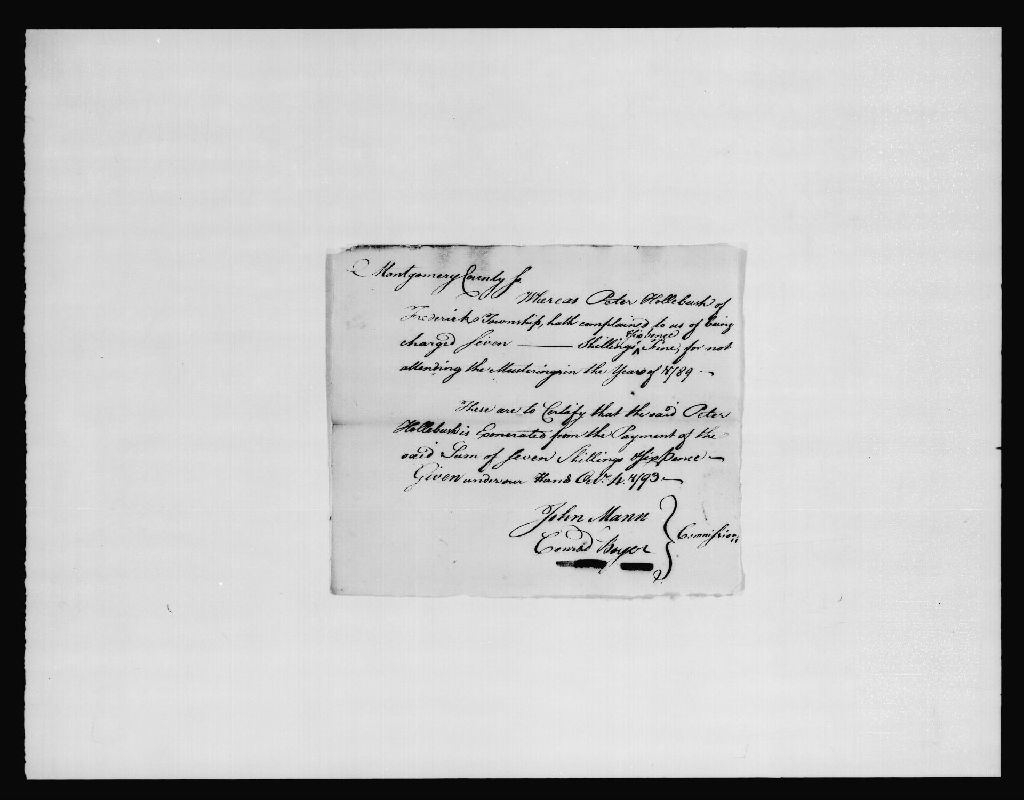 Montgomery County ss
Whereas Peter Hollebush of
Frederick Township, hath complained to us of being
charged Seven —— Shillings Six pence ^ Fine, for not
attending the Mustering in the Year of 1789 —
These are to Certify that the said Peter
Hollebush is Exonerated from the Payment of the
said Sum of Seven Shillings Six Pence —
Given under our Hands 4. 1793 —
John Mann
Conrad Boyer
Commissionrs